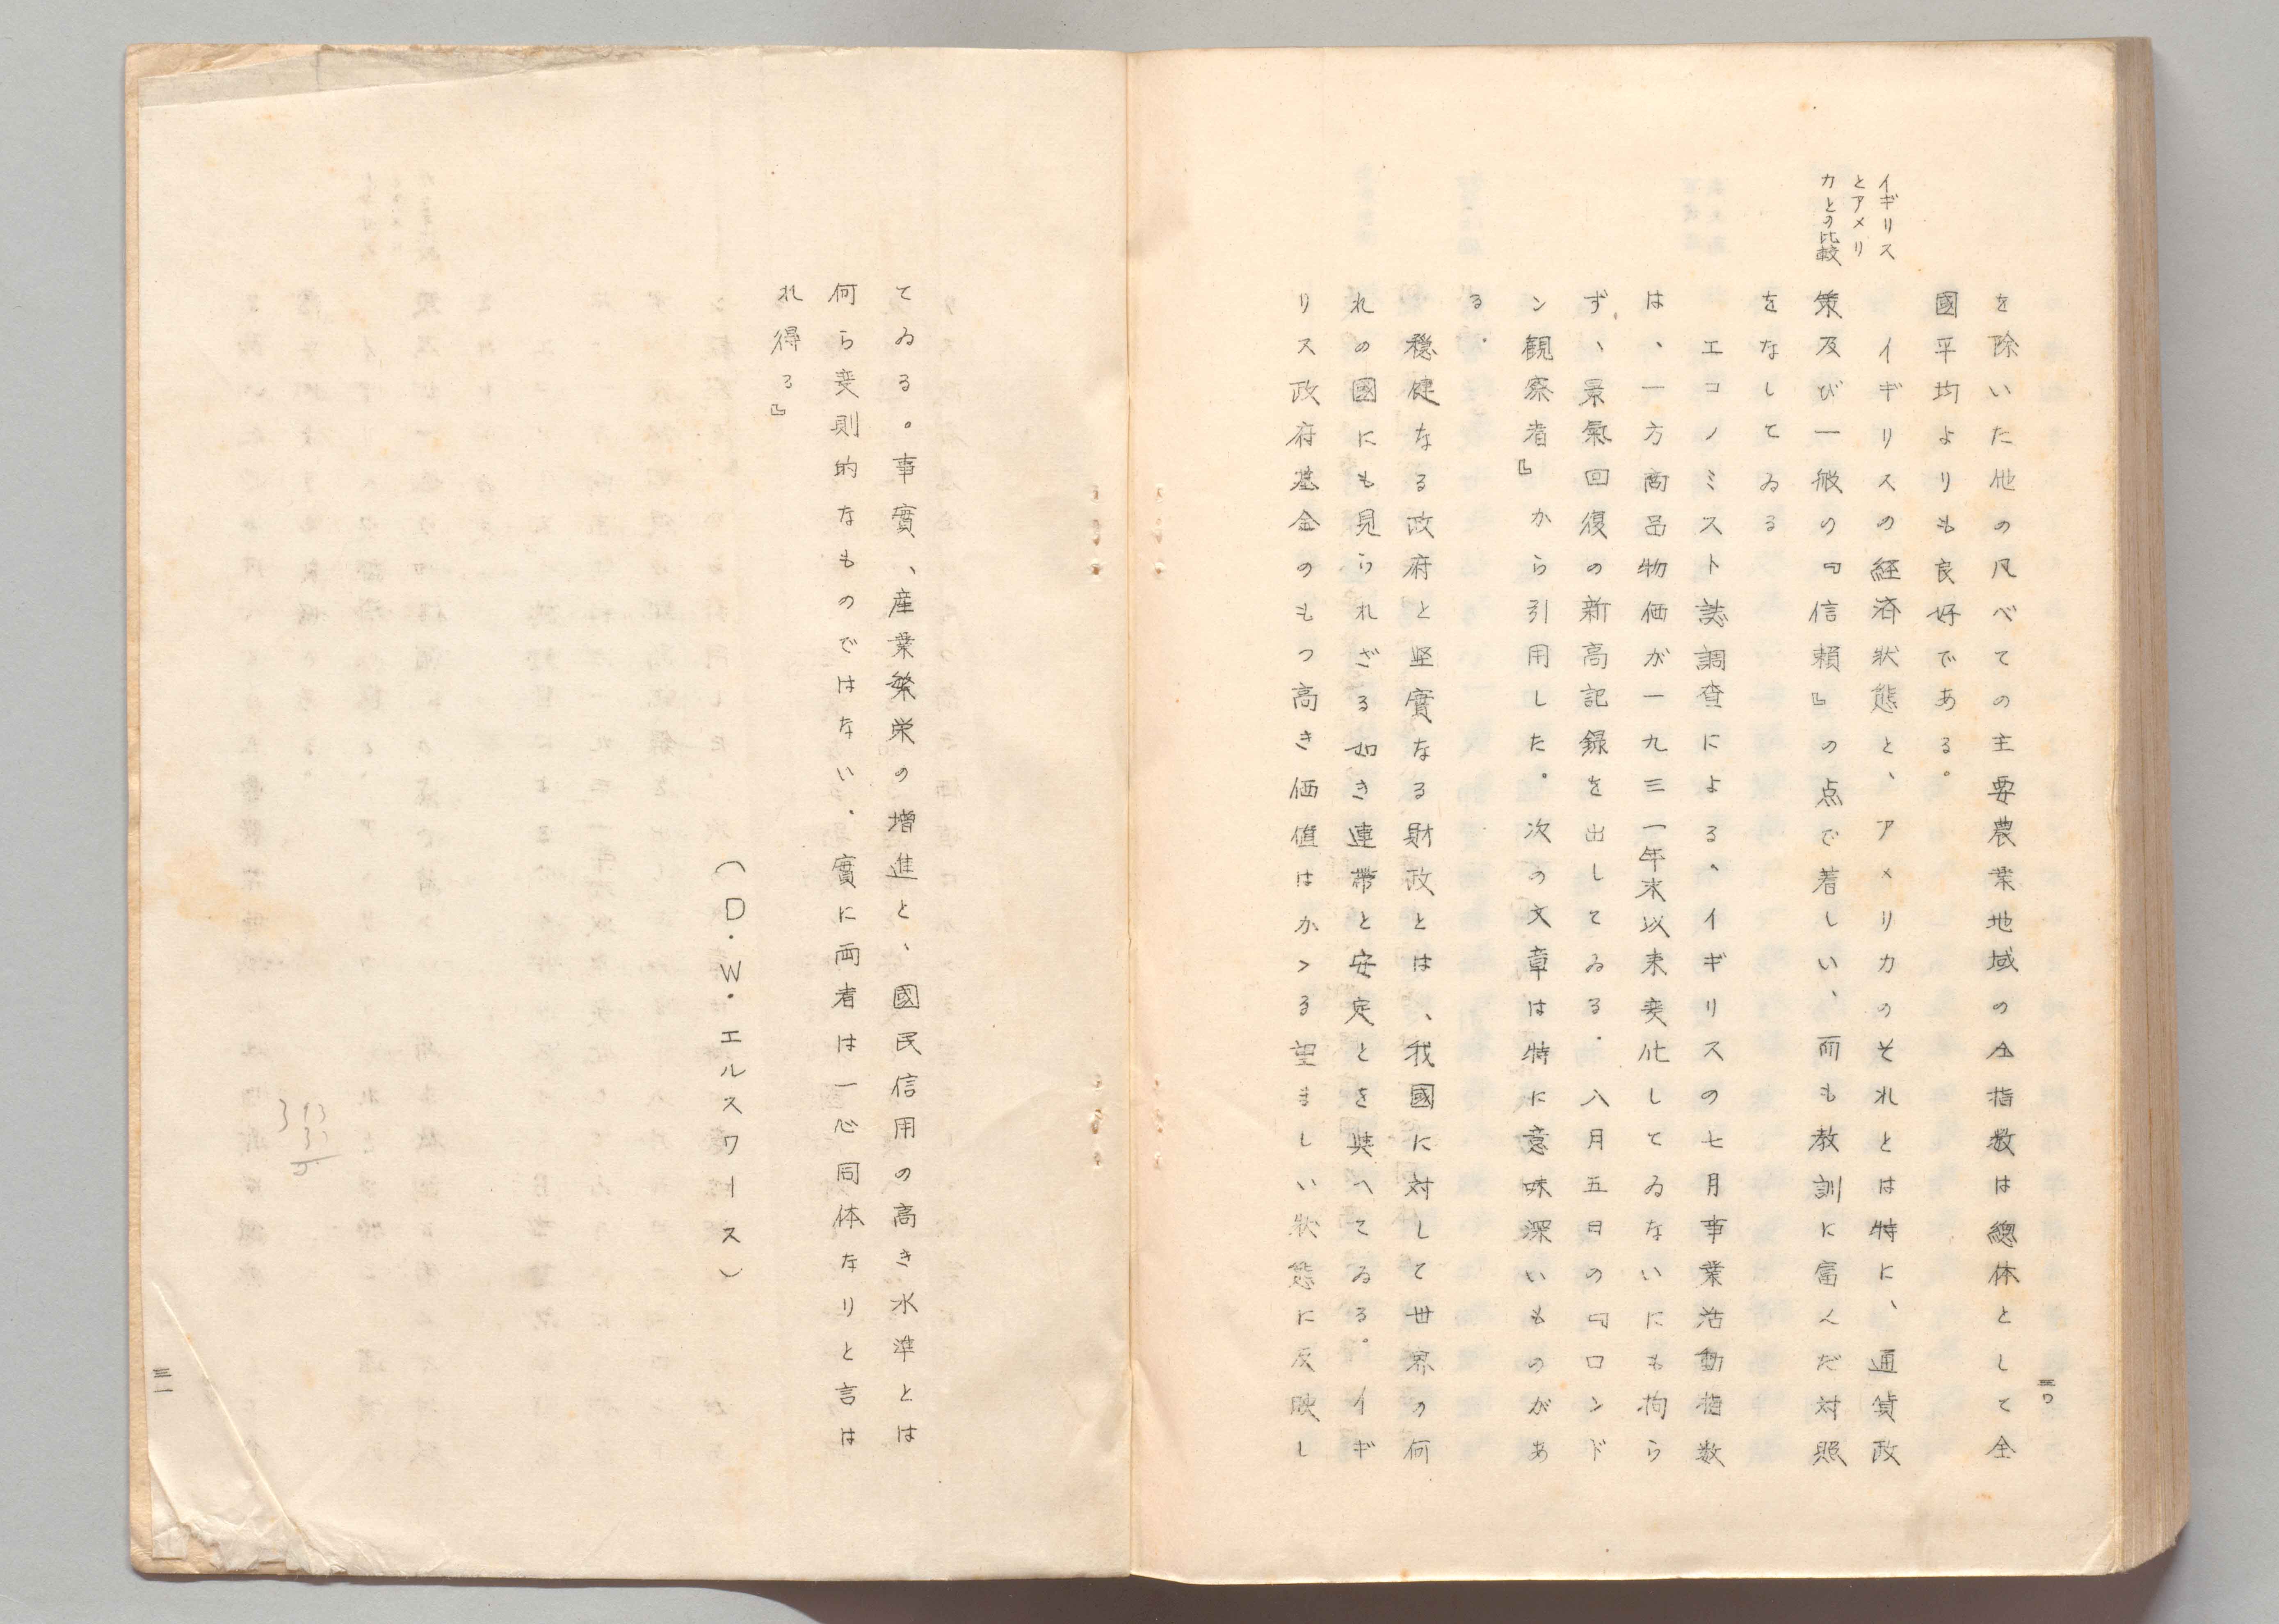 を除いた他の凡べての主要農業地域の全指数は總体として全
國平均よりも良好である。
イギリス
とアメリ
カとの比較
イギリスの経済狀態と、アメリカのそれとは特に、通貨政
策及び一般の『信頼』の点で着しい、而も教訓に富んだ対照
をなしてゐる
エコノミスト誌調査による、イギリスの七月事業活動指数
は、一方商品物価が一九三一年末以来変化してゐないにも拘ら
ず、景氣回復の新高記録を出してゐる。八月五日の『ロンド
ン観察者』から引用した。次の文章は特に意味深いものがあ
る。
穏健なる政府と堅實なる財政とは、我國に対して世界の何
れの國にも見られざる如き連帶と安定とを與へてゐる。イギ
リス政府基金のもつ高き価値はかゝる望ましい狀態に反映し
三〇
てゐる。事實、産業繁栄の増進と、國民信用の高き水準とは
何ら変則的なものではない、實に両者は一心同体なりと言は
れ得る』
(D・W・エルスワース)
三一